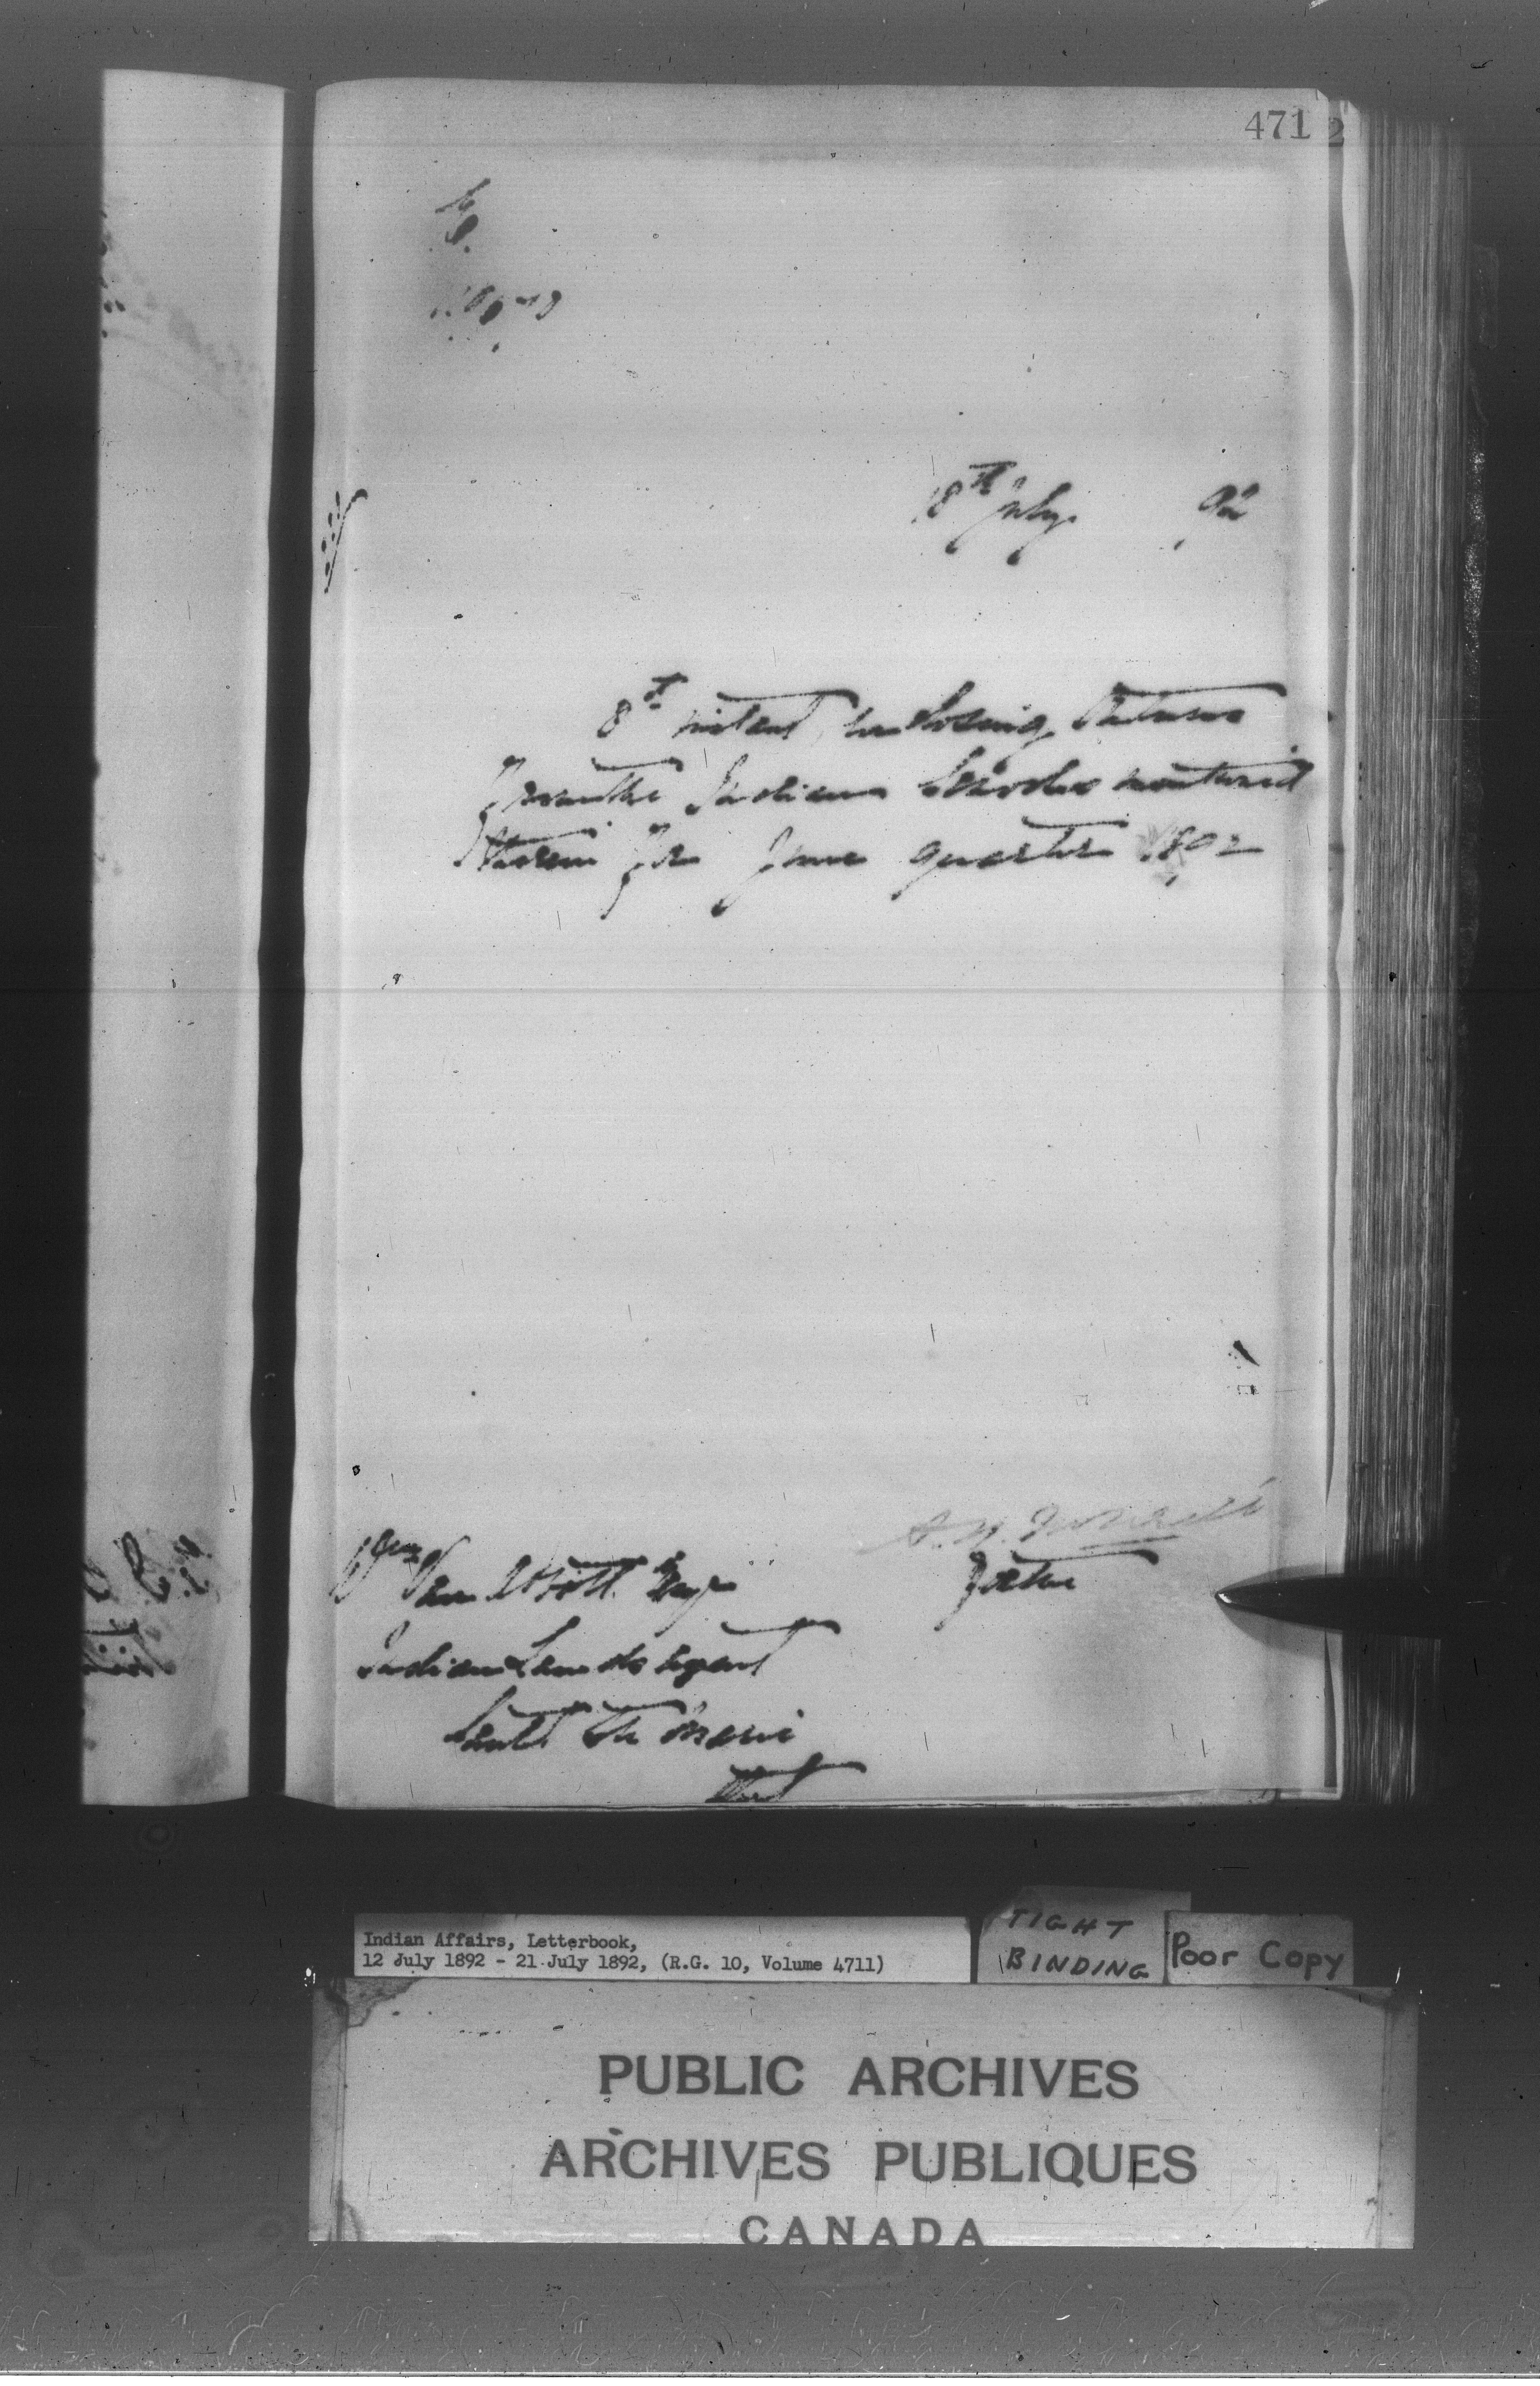 471
18th July 92
8th instant, enclosing Returns
from the Indian Schools mentioned
therein for June quarter 1892
Wm Van Abbott Esqr
Indian Lands Agent
Sault Ste Marie
Ont
Indian Affairs, Letterbook,
12 July 1892 - 21 July 1892, (R.G. 10, Volume 4711)
TIGHT
BINDING
Poor Copy
PUBLIC ARCHIVES
ARCHIVES PUBLIQUES
CANADA